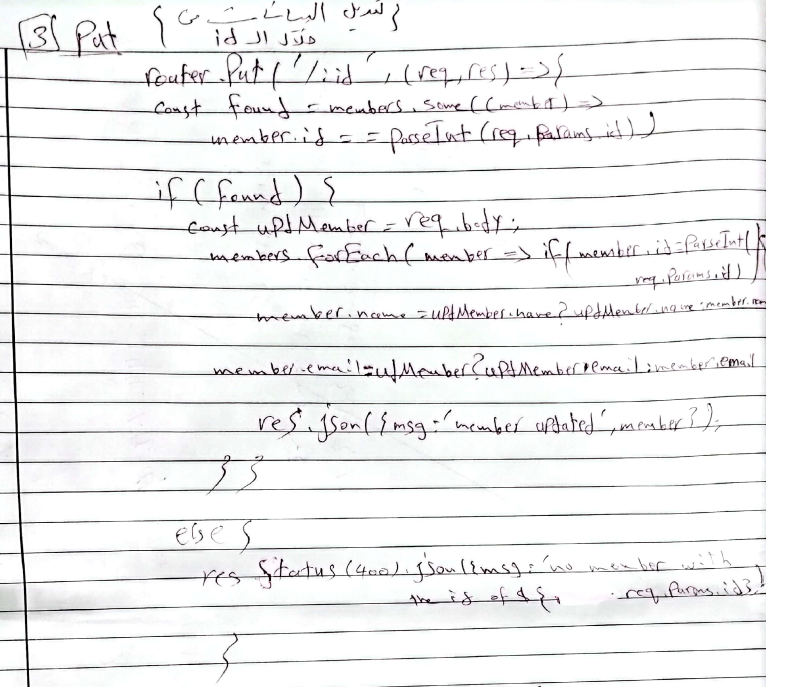 [3] Put { تعديل البيانات من
خلال ال id }
router.Put('/:id', (req, res) => {
const found = members.some((member) =>
member.id == parseInt(req.params.id))
if (found) {
const updMember = req.body;
members.forEach(member => if(member.id = ParseInt(
req.Params.id)) {
member.name = updMember.name ? updMember.name : member.name
member.email = updMember ? updMember.email : member.email
res.json({ msg: 'member updated', member });
} }
else {
res status(400).json({msg: 'no member with
the id of ${ req.params.id}
}